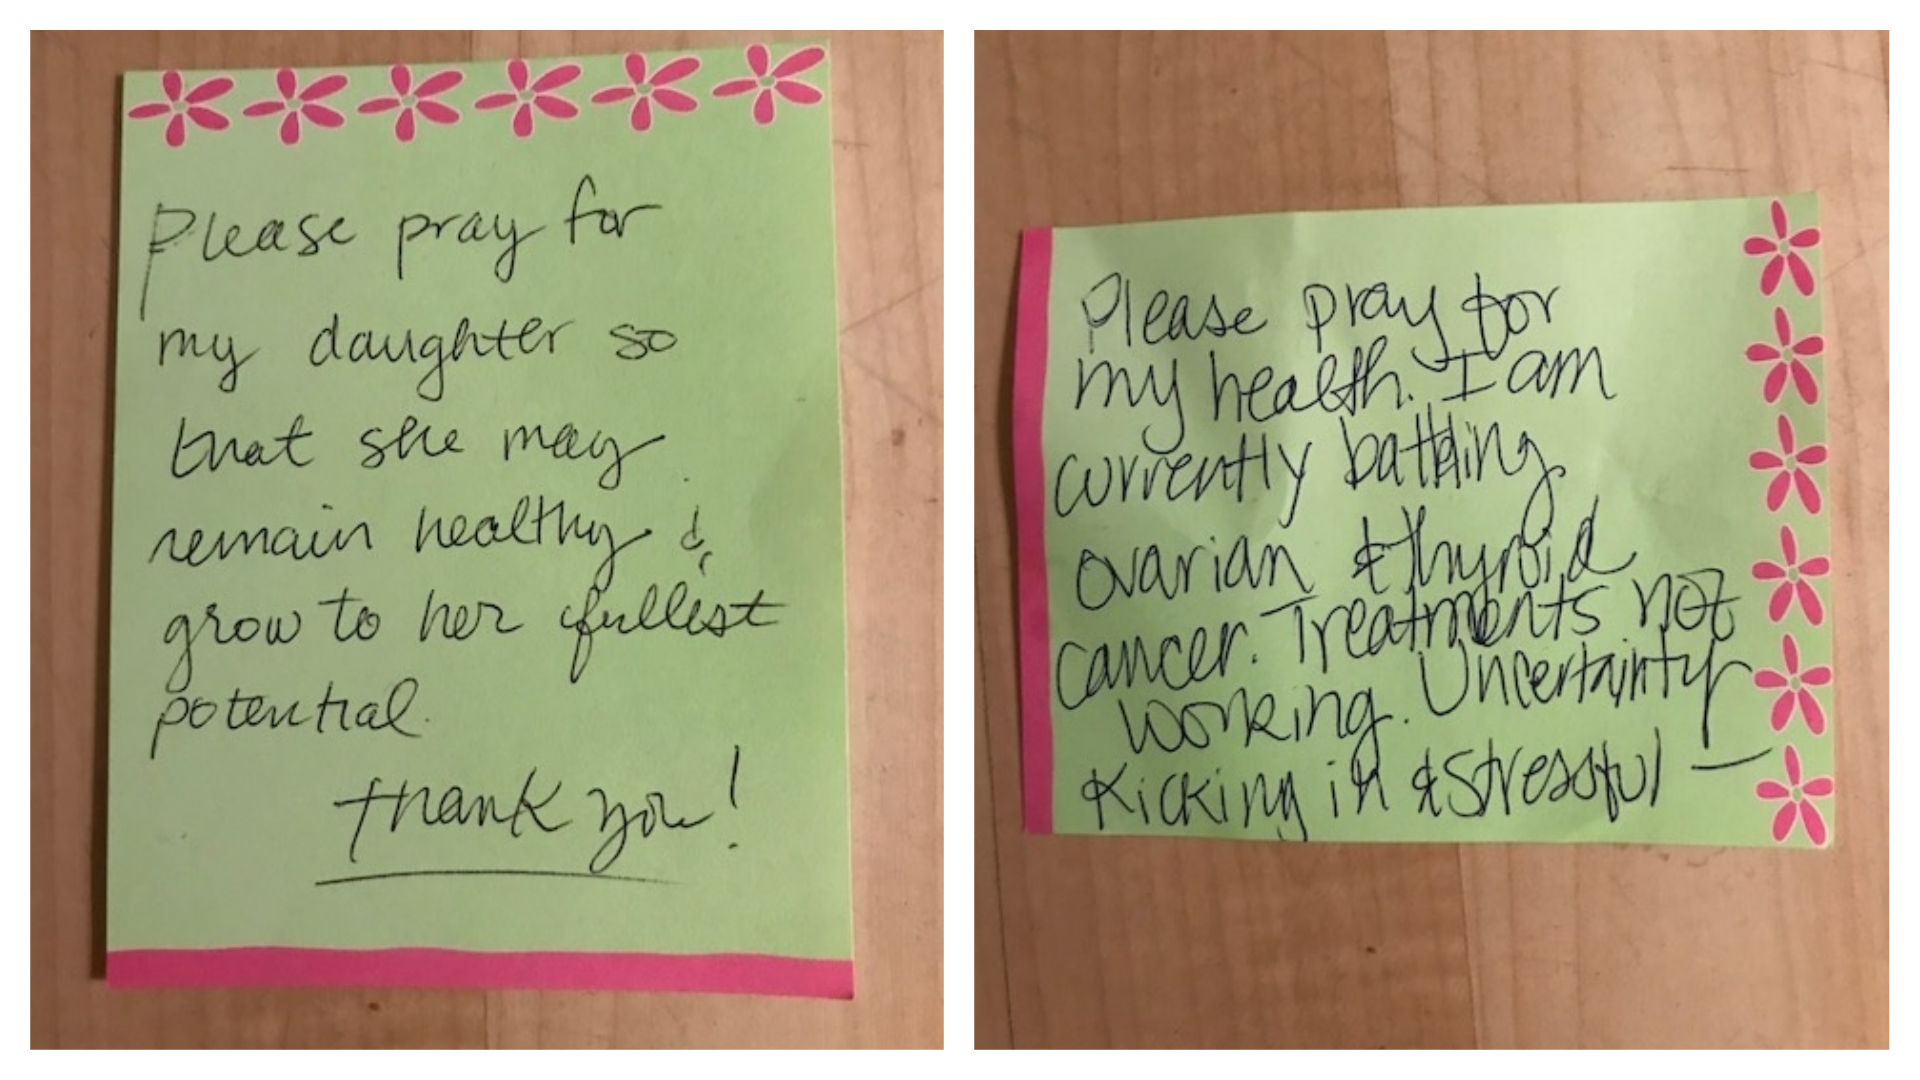 Please pray for
my daughter so
that she may
remain healthy &
grow to her fullest
potential.
thank you!
Please pray for
my health. I am
currently battling
ovarian & thyroid
cancer. Treatments not
working. Uncertainty
kicking in & stressful —